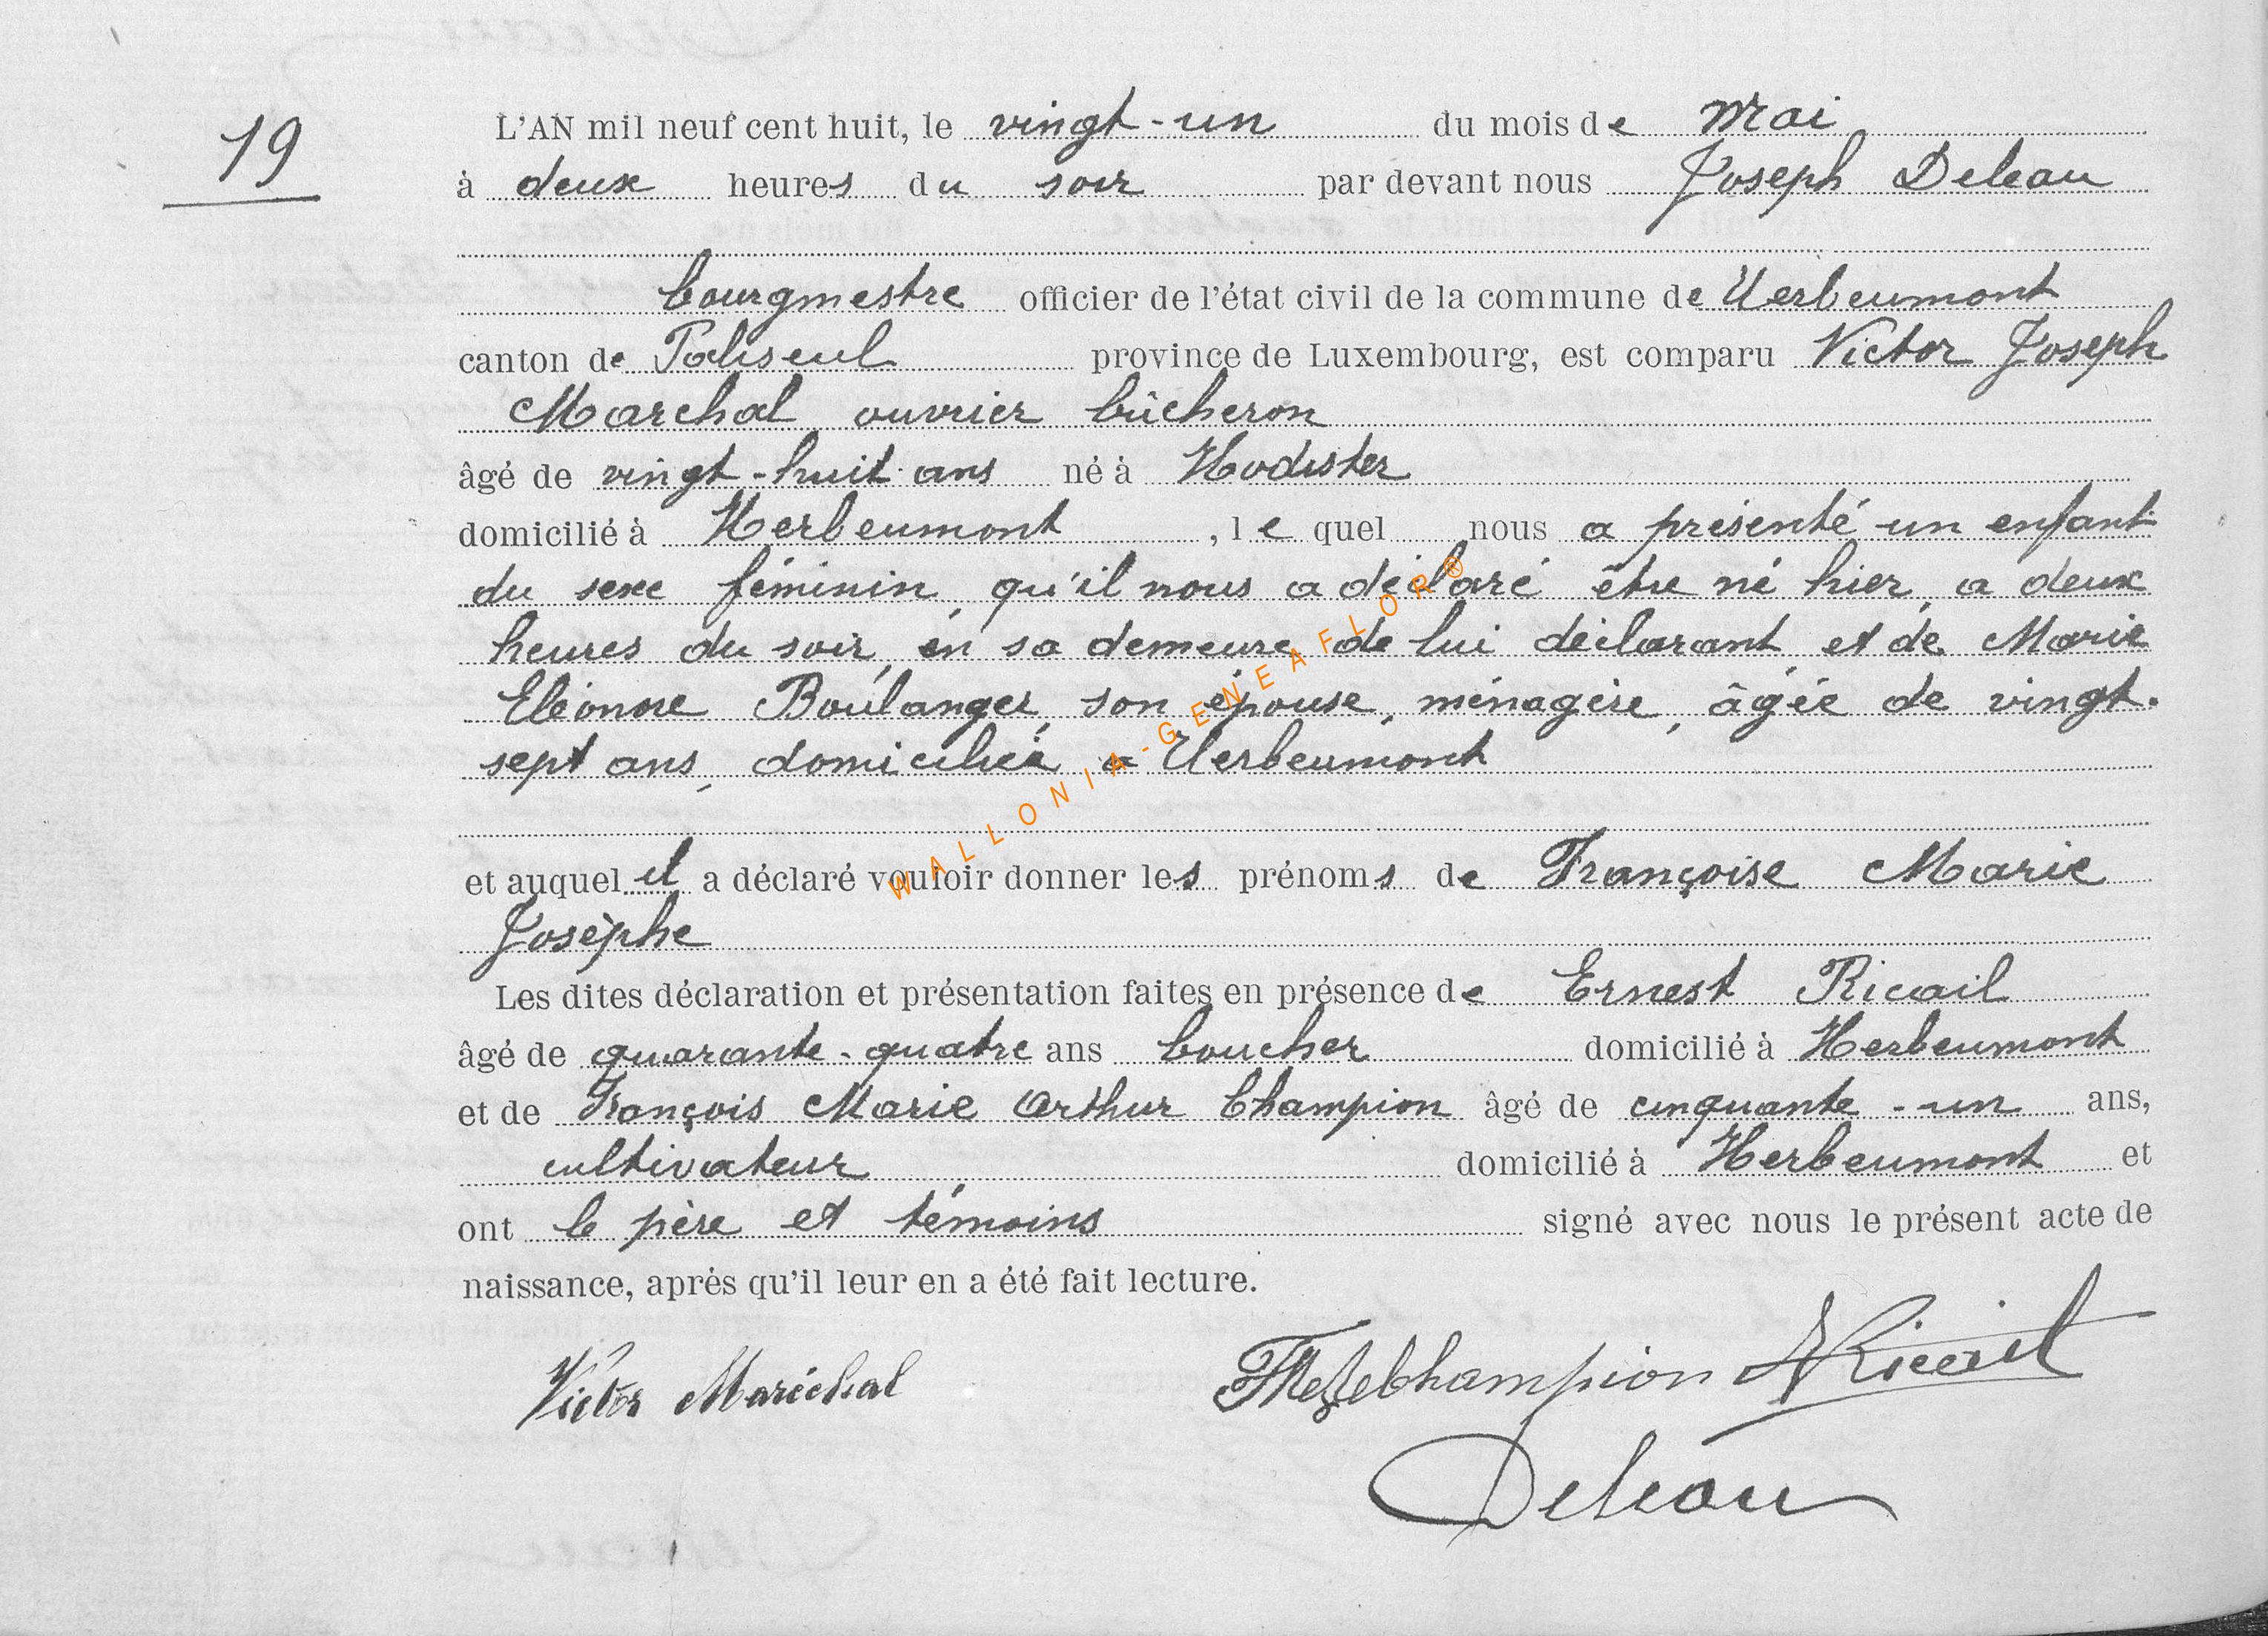 19
L'AN mil neuf cent huit, le vingt-un du mois de Mai
à deux heures du soir par devant nous Joseph Deleau
bourgmestre officier de l'état civil de la commune de Herbeumont
canton de Paliseul province de Luxembourg, est comparu Victor Joseph
Marchal ouvrier bûcheron
âgé de vingt-huit ans né à Hodister
domicilié à Herbeumont, le quel nous a présenté un enfant
du sexe féminin, qu'il nous a déclaré être né hier, a deux
heures du soir, en sa demeure, de lui déclarant, et de Marie
Eléonore Boulanger, son épouse, ménagère, âgée de vingt-
sept ans, domiciliée a Herbeumont
et auquel il a déclaré vouloir donner les prénoms de Françoise Marie
Josèphe
Les dites déclaration et présentation faites en présence de Ernest Ricail
âgé de quarante-quatre ans boucher domicilié à Herbeumont
et de François Marie Arthur Champion âgé de cinquante-un ans,
cultivateur domicilié à Herbeumont et
ont le père et témoins signé avec nous le présent acte de
naissance, après qu'il leur en a été fait lecture.
Victor Maréchal champion Ricail
Deleau
WALLONIA-GENEAFLOR®